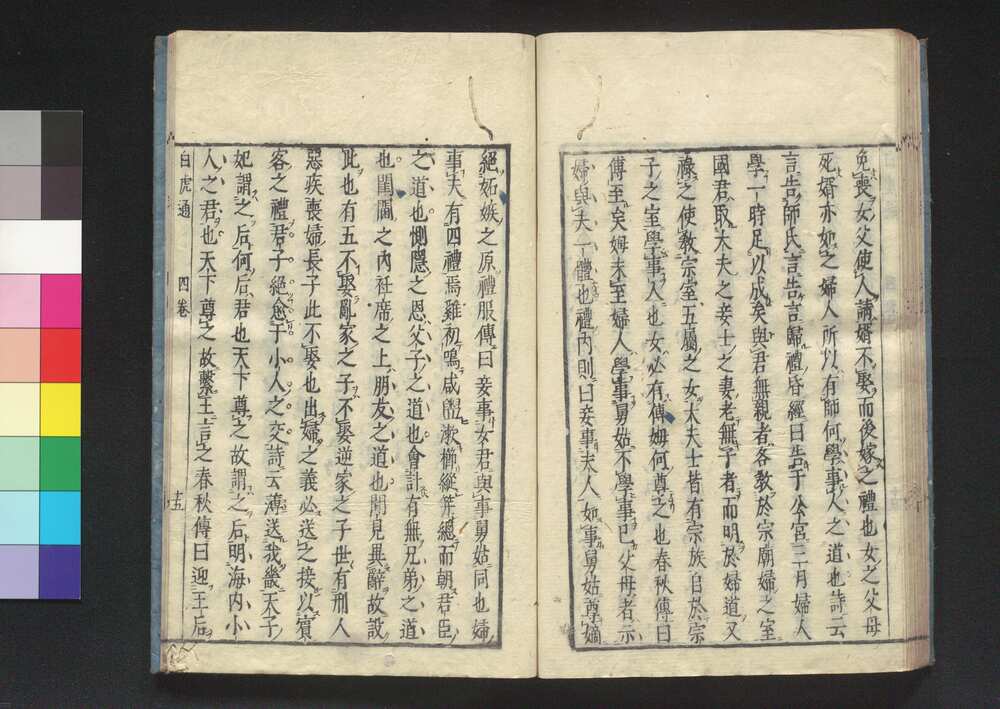 免喪女父使人請婿不娶而後嫁之禮也女之父母
死婿亦如之婦人所以有師何學事人之道也詩云
言告師氏言告言歸禮昏經曰告于公宮三月婦人
學一時足以成矣與君無親者各教於宗廟婦之室
國君取大夫之妾士之妻老無子者而明於婦道又
祿之使教宗室五屬之女大夫士皆有宗族自於宗
子之室學事人也女必有傅姆何尊之也春秋傳曰
傅至矣姆未至婦人學事舅姑不學事巳父母者示
婦與夫一體也禮内則曰妾事夫人如事舅姑尊嫡
絕妬嫉之原禮服傳曰妾事女君與事舅姑同也婦
事夫有四禮焉雞初鳴咸盥漱櫛縰笄總而朝君臣
之道也惻隱之恩父子之道也會計有無兄弟之道
也閨閫之內社席之上朋友之道也聞見異辭故設
此也有五不娶亂家之子不娶逆家之子世有刑人
惡疾喪婦長子此不娶也出婦之義必送之接以賓
客之禮君子絕愈于小人之交詩云薄送我畿天子
妃謂之后何后君也天下尊之故謂之后明海內小
人之君也天下尊之故繫王言之春秋傳曰迎王后
白虎通 四卷 十五